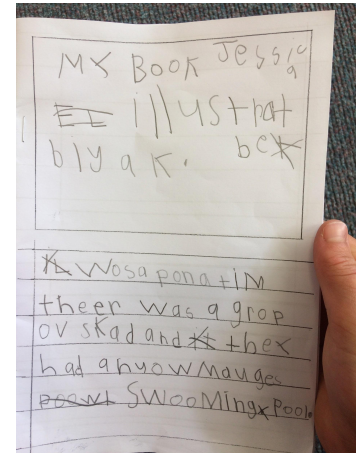 MY BOOK Jessica
illustrat
bly a k. bex
Wosaponatim
theer was a grop
ov skad and thex
had anyowmauges
SWooMing Pool.